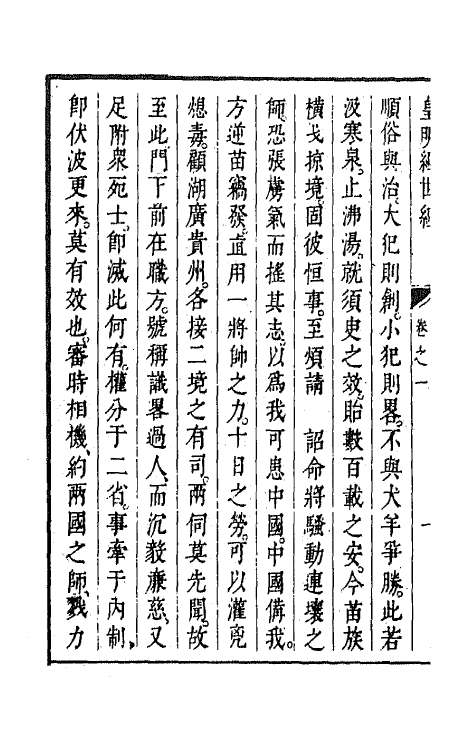 皇明經世經
卷之一
一
順俗與治。大犯則創。小犯則畧。不與犬羊爭勝。此若
汲寒泉。止沸湯。就須臾之效。貽數百載之安。今苗族
橫戈掠境。固彼恒事。至煩請　詔命將騷動連壤之
師。恐張虜氣而搖其志。以爲我可患中國。中國備我。
方逆苗竊發。直用一將帥之力。十日之勞。可以灌兇
熄毒。顧湖廣貴州。各接二境之有司。兩伺莫先聞。故
至此。門下前在職方。號稱識畧過人。而沉毅亷慈。又
足附衆宛士。卽滅此何有。權分于二省。事牽于內制、
卽伏波更來。莫有效也。審時相機、約兩國之師、戮力